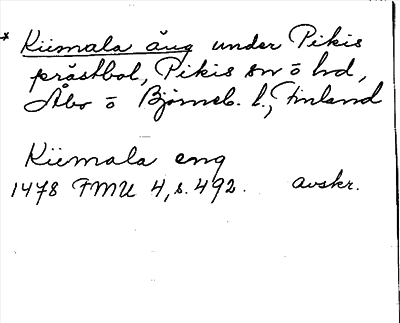 * Kiimala äng under Pikis
prästbol, Pikis sn o hd,
Åbo o Björneb. l., Finland
Kiimala eng
1478 FMU 4, s. 492. avskr.